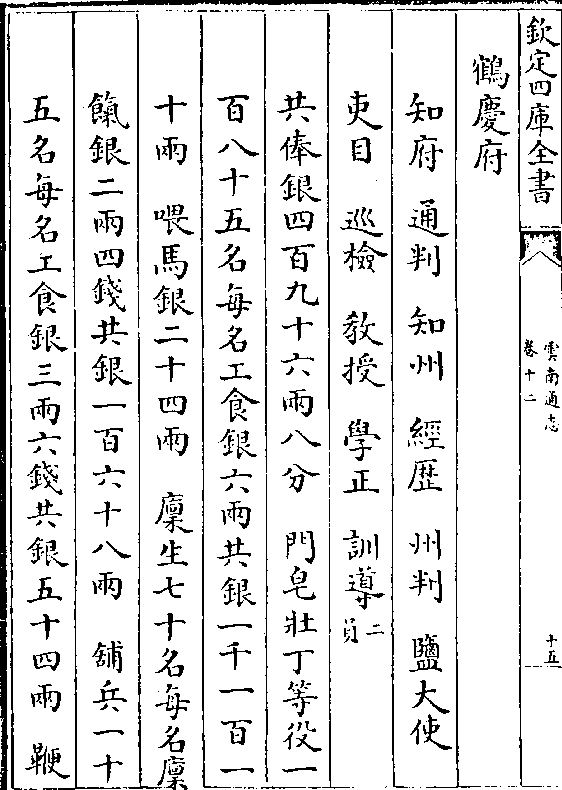 欽定四庫全書
雲南通志
卷十二
十五
鶴慶府
知府 通判 知州 經歴 州判 鹽大使
吏目 巡檢 教授 學正 訓導二員
共俸銀四百九十六兩八分 門皂壯丁等役一
百八十五名每名工食銀六兩共銀一千一百一
十兩 喂馬銀二十四兩 廪生七十名每名廪
餼銀二兩四錢共銀一百六十八兩 舖兵一十
五名每名工食銀三兩六錢共銀五十四兩 鞭